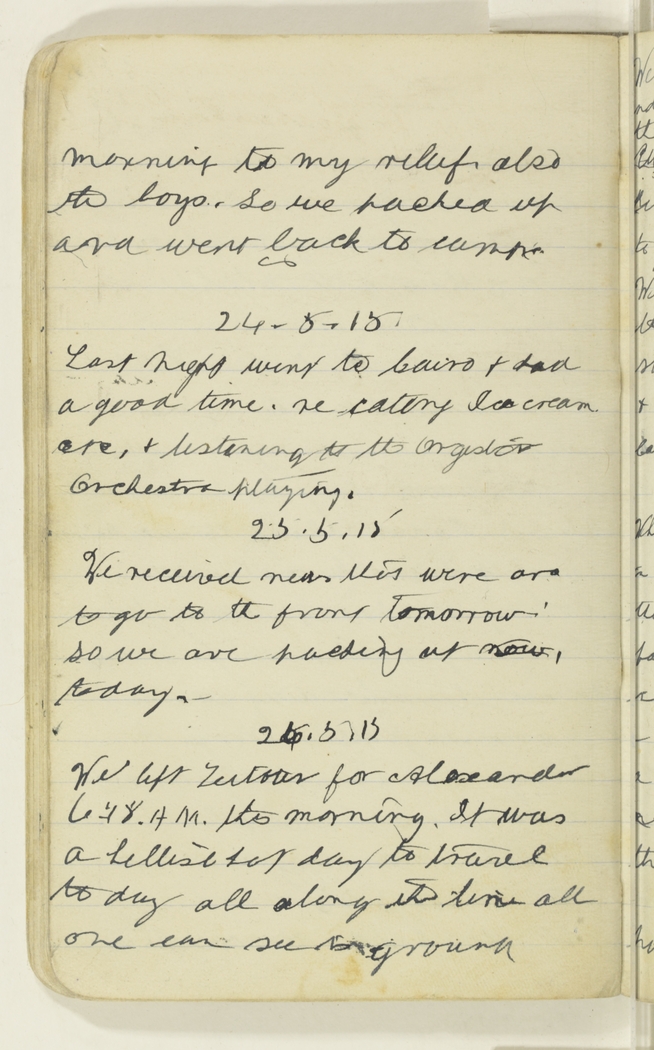 morning to my relief also
the boys. So we packed up
and went back to camp.
24-5-15
Last night went to Cairo & had
a good time. re eating Ice cream
etc, & listening to the
Orchestra playing.
25.5.15
We received news that were are
to go to the front tomorrow
so we are packing up now,
today.-
26.5.15
We left Zeitoun for Alexandr
6-48. A.M. this morning. It was
a hellish hot day to travel
to day all along the line all
one can see is ground